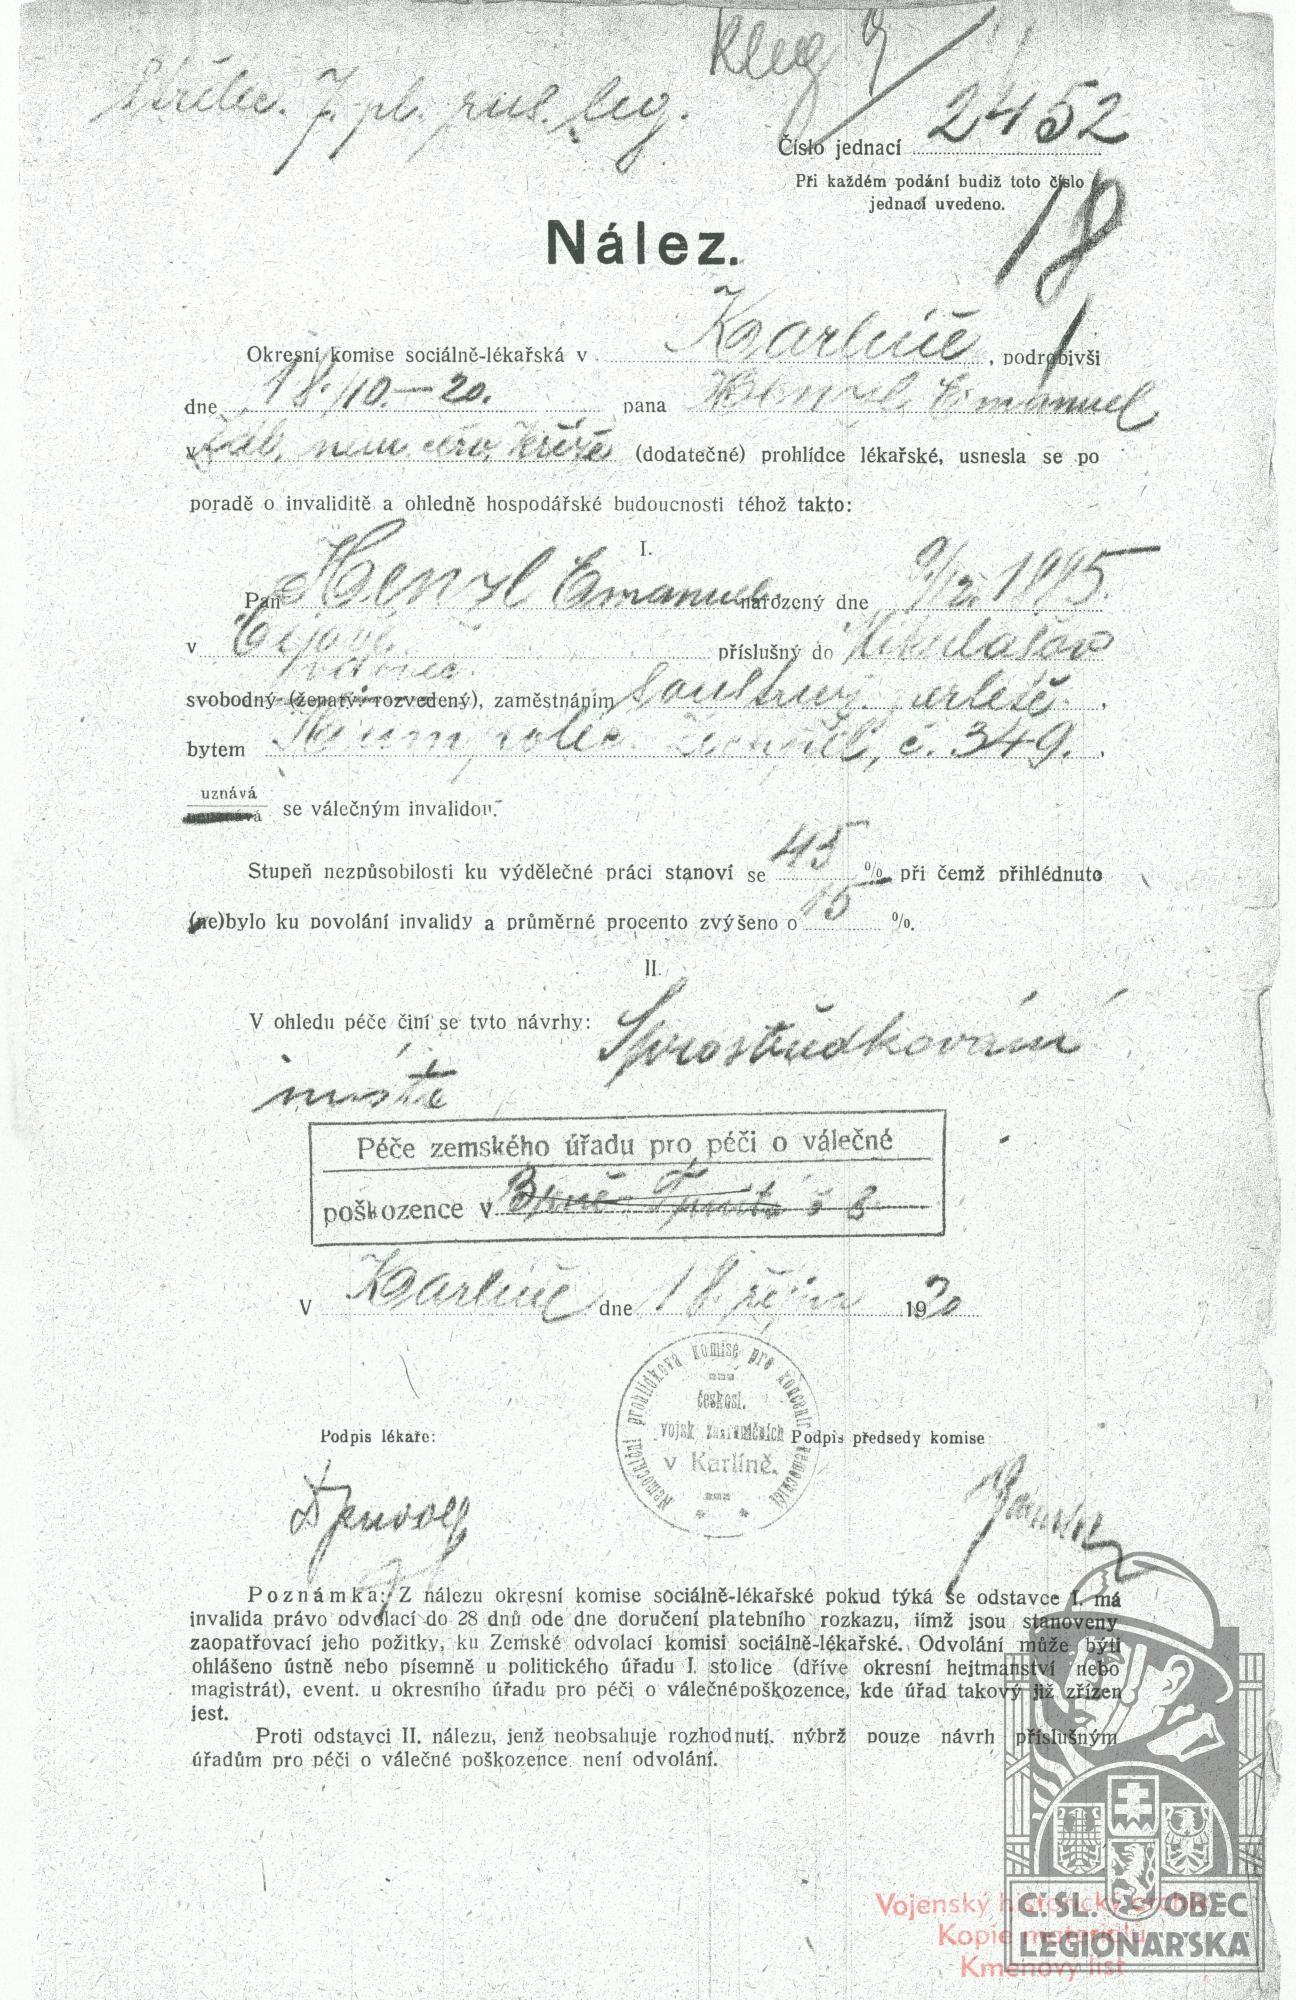 Střelec. 7. pl. rus. leg.
Číslo jednací 2452
Při každém podání budiž toto číslo
jednací uvedeno.
18
Nález.
Okresní komise sociálně-lékařská v Karlíně, podrobivši
dne 18./10.-20. pana Henzl Emanuel
v nem. červ. kříže (dodatečné) prohlídce lékařské, usnesla se po
poradě o invaliditě a ohledně hospodářské budoucnosti téhož takto:
I.
Pan Henzl Emanuel narozený dne 9/12. 1885.
v příslušný do Mikulášov
svobodný (ženatý. rozvedený), zaměstnáním
bytem Humpolec č. 349.
uznává
se válečným invalidou.
Stupeň nezpůsobilosti ku výdělečné práci stanoví se 45 % při čemž přihlédnuto
(ne)bylo ku povolání invalidy a průměrné procento zvýšeno o 15 %.
II.
V ohledu péče činí se tyto návrhy: Sprostředkování
místa
Péče zemského úřadu pro péči o válečné
poškozence v Brně
V Karlíně dne 18. října 1920
Nemocniční prohlídková komise pro koncentr. nemocnici
českosl.
vojsk zahraničních
v Karlíně.
Podpis lékaře: Podpis předsedy komise
Poznámka: Z nálezu okresní komise sociálně-lékařské pokud týká se odstavce I. má
invalida právo odvolací do 28 dnů ode dne doručení platebního rozkazu, jímž jsou stanoveny
zaopatřovací jeho požitky, ku Zemské odvolací komisi sociálně-lékařské. Odvolání může býti
ohlášeno ústně nebo písemně u politického úřadu I. stolice (dříve okresní hejtmanství nebo
magistrát), event. u okresního úřadu pro péči o válečnépoškozence, kde úřad takový již zřízen
jest.
Proti odstavci II. nálezu, jenž neobsahuje rozhodnutí. nýbrž pouze návrh příslušným
úřadům pro péči o válečné poškozence není odvolání.
Vojenský historický archiv
Kopie materiálů
Kmenový list
Č. SL. OBEC
LEGIONÁŘSKÁ